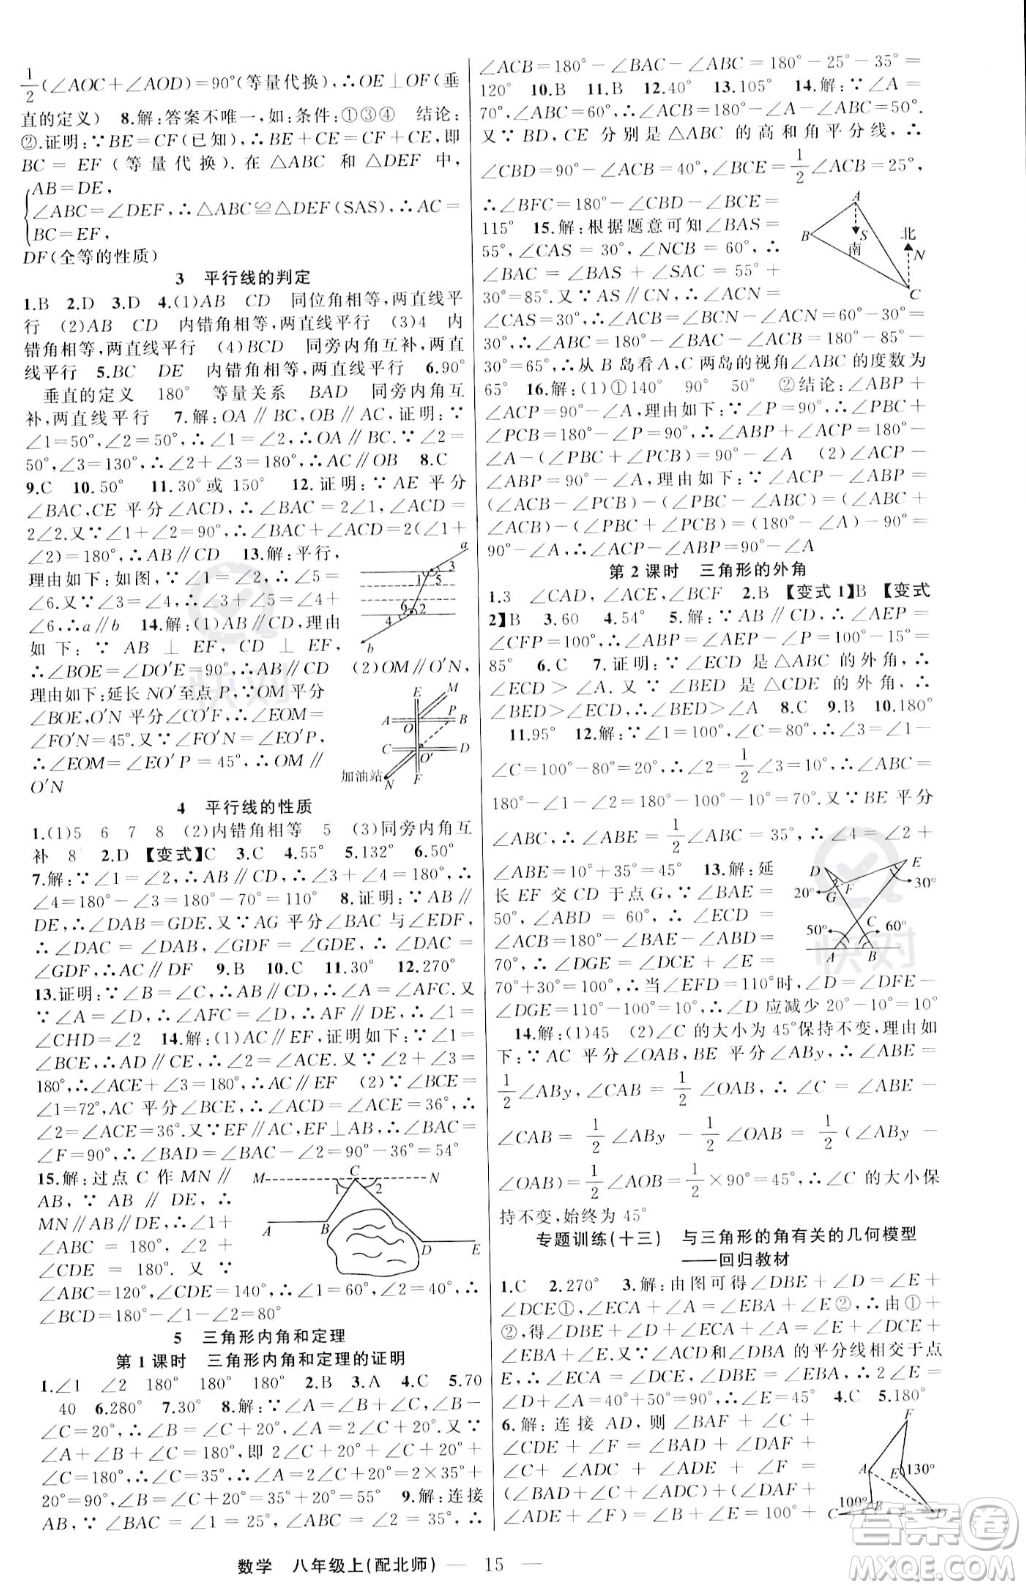 1/2(∠AOC＋∠AOD)＝90°(等量代换),∴OE⊥OF(垂
直的定义)　8.解:答案不唯一,如:条件:①③④　结论:
②.证明:∵BE＝CF(已知),∴BE＋EC＝CF＋CE,即
BC＝EF(等量代换).在△ABC 和△DEF 中,
AB＝DE,
∠ABC＝∠DEF,∴△ABC≌△DEF(SAS),∴AC＝
BC＝EF,
DF(全等的性质)
3　平行线的判定
1.B　2.D　3.D　4.(1)AB　CD　同位角相等,两直线平
行　(2)AB　CD　内错角相等,两直线平行　(3)4　内
错角相等,两直线平行　(4)BCD　同旁内角互补,两直
线平行　5.BC　DE　内错角相等,两直线平行　6.90°
垂直的定义　180°　等量关系　BAD　同旁内角互
补,两直线平行　7.解:OA∥BC,OB∥AC.证明:∵
∠1＝50°,∠2＝50°,∴∠1＝∠2,∴OA∥BC.∵∠2＝
50°,∠3＝130°,∴∠2＋∠3＝180°,∴AC∥OB　8.C
9.C　10.50°　11.30°或 150°　12.证明:∵AE 平分
∠BAC,CE 平分∠ACD,∴∠BAC＝2∠1,∠ACD＝
2∠2.又∵∠1＋∠2＝90°,∴∠BAC＋∠ACD＝2(∠1＋
∠2)＝180°,∴AB∥CD　13.解:平行,
理由如下:如图,∵∠2＋∠4＝∠5＋
∠6.又∵∠1＝∠2,∠3＝∠4,∴∠5＝
∠6,∴a∥b　14.解:(1)平行,理由
如下:∵AB⊥EF,CD⊥EF,
∴∠BOE＝∠DO′E＝90°,∴AB∥CD　(2)OM∥O′N,
理由如下:延长 NO′至点 P,∵OM 平分
∠BOE,O′N 平分∠CO′F,∴∠EOM＝
∠FO′N＝45°.又∵∠FO′N＝∠EO′P,
∴∠EOM＝∠EO′P＝45°,∴OM∥
O′N
4　平行线的性质
1.(1)5　6　7　8　(2)内错角相等　5　(3)同旁内角互
补　8　2.D　【变式】C　3.C　4.55°　5.132°　6.50°
7.解:∵∠1＝∠2,∴AB∥CD,∴∠3＋∠4＝180°,∴
∠4＝180°－∠3＝180°－70°＝110°　8.证明:∵AB∥
DE,∴∠DAB＝GDE.又∵AG 平分∠BAC 与∠EDF,
∴∠DAC＝∠DAB,∠GDF＝∠GDE,∴∠DAC＝
∠GDF,∴AC∥DF　9.B　10.C　11.30°　12.270°
13.证明:∵∠B＝∠C,∴AB∥CD,∴∠A＝∠AFC.又
∵∠A＝∠D,∴∠AFC＝∠D,∴AF∥DE,∴∠1＝
∠CHD＝∠2　14.解:(1)AC∥EF,证明如下:∵∠1＝
∠BCE,∴AD∥CE,∴∠2＝∠ACE.∵∠2＋∠3＝
180°,∴∠ACE＋∠3＝180°,∴AC∥EF　(2)∵∠BCE＝
∠1＝72°,AC 平分∠BCE,∴∠ACD＝∠ACE＝36°,∴
∠2＝∠ACE＝36°.又∵EF∥AC,EF⊥AB,∴∠BAC＝
∠F＝90°,∴∠BAD＝∠BAC－∠2＝54°
15.解:过点 C 作 MN∥
AB,∵AB∥DE,∴
MN∥AB∥DE,∴∠1＋
∠ABC＝180°,∠2＋
∠CDE＝180°.∵
∠ABC＝120°,∠CDE＝140°,∴∠1＝60°,∠2＝40°,∴
∠BCD＝180°－∠1－∠2＝80°
5　三角形内角和定理
第 1 课时　三角形内角和定理的证明
1.∠1　∠2　180°　180°　180°　2.B　3.A　4.C　5.70
40　6.280°　7.30°　8.解:∵∠A＝∠B＋20°,∠B＝
∠C＋20°,∴∠A＝∠C＋20°＋20°＝∠C＋40°.又∵
∠A＋∠B＋∠C＝180°,即 2∠C＋40°＋∠C＋20°＋
∠C＝180°,∴∠C＝40°,∠A＝2∠C＝80°,∠B＝∠C＋
20°＝60°　9.解:连接
AB,∵∠BAC＝∠DAC－∠DAB,∠ABC＝∠EBC－∠EBA,∴
∠ACB＝180°－∠BAC－∠ABC＝
120°　10.B　11.B　12.40°　13.105°　14.解:∵∠A＝
70°,∠ABC＝60°,∴∠ACB＝180°－∠A－∠ABC＝50°.
又∵BD,CE 分别是△ABC 的高和角平分线,∴
∠CBD＝90°－∠ACB＝40°,∠BCE＝1/2∠ACB＝25°,
∴∠BFC＝180°－∠CBD－∠BCE＝
115°　15.解:根据题意可知∠BAS＝
55°,∠CAS＝30°,∠NCB＝60°,∴
∠BAC＝∠BAS＋∠CAS＝55°＋
30°＝85°.又∵AS∥CN,∴∠ACN＝
∠CAS＝30°,∴∠ACB＝∠BCN－∠ACN＝60°－30°＝
30°,∴∠ABC＝180°－∠BAC－∠ACB＝180°－85°－
30°＝65°,∴从 B 岛看 A,C 两岛的视角∠ABC 的度数为
65°　16.解:(1)①140°　90°　50°　②结论:∠ABP＋
∠ACP＝90°－∠A,理由如下:∵∠P＝90°,∴∠PBC＋
∠PCB＝180°－∠P＝90°,∴∠ABP＋∠ACP＝180°－
∠A－(∠PBC＋∠PCB)＝90°－∠A　(2)∠ACP－
∠ABP＝90°－∠A,理由如下:∵∠ACP－∠ABP＝
(∠ACB＋∠PCB)－(∠PBC－∠ABC)＝(∠ACB＋
∠ABC)－(∠PBC－∠PCB)＝(180°－∠A)－
90°＝90°－∠A,∴∠ACP－∠ABP＝90°－∠A
第 2 课时　三角形的外角
1.3　∠CAD,∠ACE,∠BCF　2.B　【变式 1】B　【变式
2】B　3.60　4.54°　5.解:∵AB∥CD,∴∠AEP＝
∠CFP＝100°,∴∠ABP＝∠AEP－∠P＝100°－15°＝
85°　6.C　7.证明:∵∠ECD 是△ABC 的外角,∴
∠ECD＞∠A.又∵∠BED 是△CDE 的外角,∴
∠BED＞∠ECD,∴∠BED＞∠A　8.C　9.B　10.180°
11.95°　12.解:∵∠1＝100°,∠C＝80°,∴∠3＝∠1－
∠C＝100°－80°＝20°,∴∠2＝1/2∠3＝10°,∴∠BAC＝
180°－∠1－∠2＝180°－100°－10°＝70°.又∵BE 平分
∠ABC,∴∠ABE＝1/2∠ABC＝35°,∴∠4＝∠2＋
∠ABE＝10°＋35°＝45°　13.解:延
长 EF 交 CD 于点 G,∵∠BAE＝
50°,∠ABD＝60°,∴∠ECD＝
∠ACB＝180°－50°－60°＝
70°,∴∠DGE＝∠DCE＋∠E＝
70°＋30°＝100°,∴当∠EFD＝110°时,∠D＝∠DFE－
∠DGE＝110°－100°＝10°,∴∠D 应减少 20°－10°＝10°
14.解:(1)45　(2)∠C 的大小为 45°保持不变,理由如
下:∵AC 平分∠OAB,BE 平分∠ABy,∴∠ABE＝
1/2∠ABy,∠CAB＝1/2∠OAB,∴∠C＝∠ABE－
∠CAB＝1/2∠ABy－1/2∠OAB＝1/2(∠ABy－
∠OAB)＝1/2∠AOB＝1/2×90°＝45°,∴∠C 的大小保
持不变,始终为 45°
专题训练(十三)　与三角形的角有关的几何模型
——回归教材
1.C　2.270°　3.解:由图可得∠DBE＋∠D＝∠E＋
∠DCE①,∠ECA＋∠E＝∠EBA＋∠A②,由①＋
②,得∠DBE＋∠D＋∠ECA＋∠E＝∠E＋∠DCE＋
∠EBA＋∠A.∵∠DBA 和∠DCA 的平分线相交于点
E,∴∠DBE＝∠EBA,∠DCE＝∠ECA,∴2∠E＝
∠D＋∠A＝40°＋50°＝90°,∴∠E＝45°　4.C　5.180°
6.解:连接 AD,则∠BAF＋∠C＋
∠CDE＋∠F＝∠BAD＋∠DAF＋∠C＋
数学　八年级上(配北师)　—　15　—
M C N
A B D E
a b
加油站
北 南
20° 30° 50° 60°
100° 130°
快对
答案圈
MXQE.COM